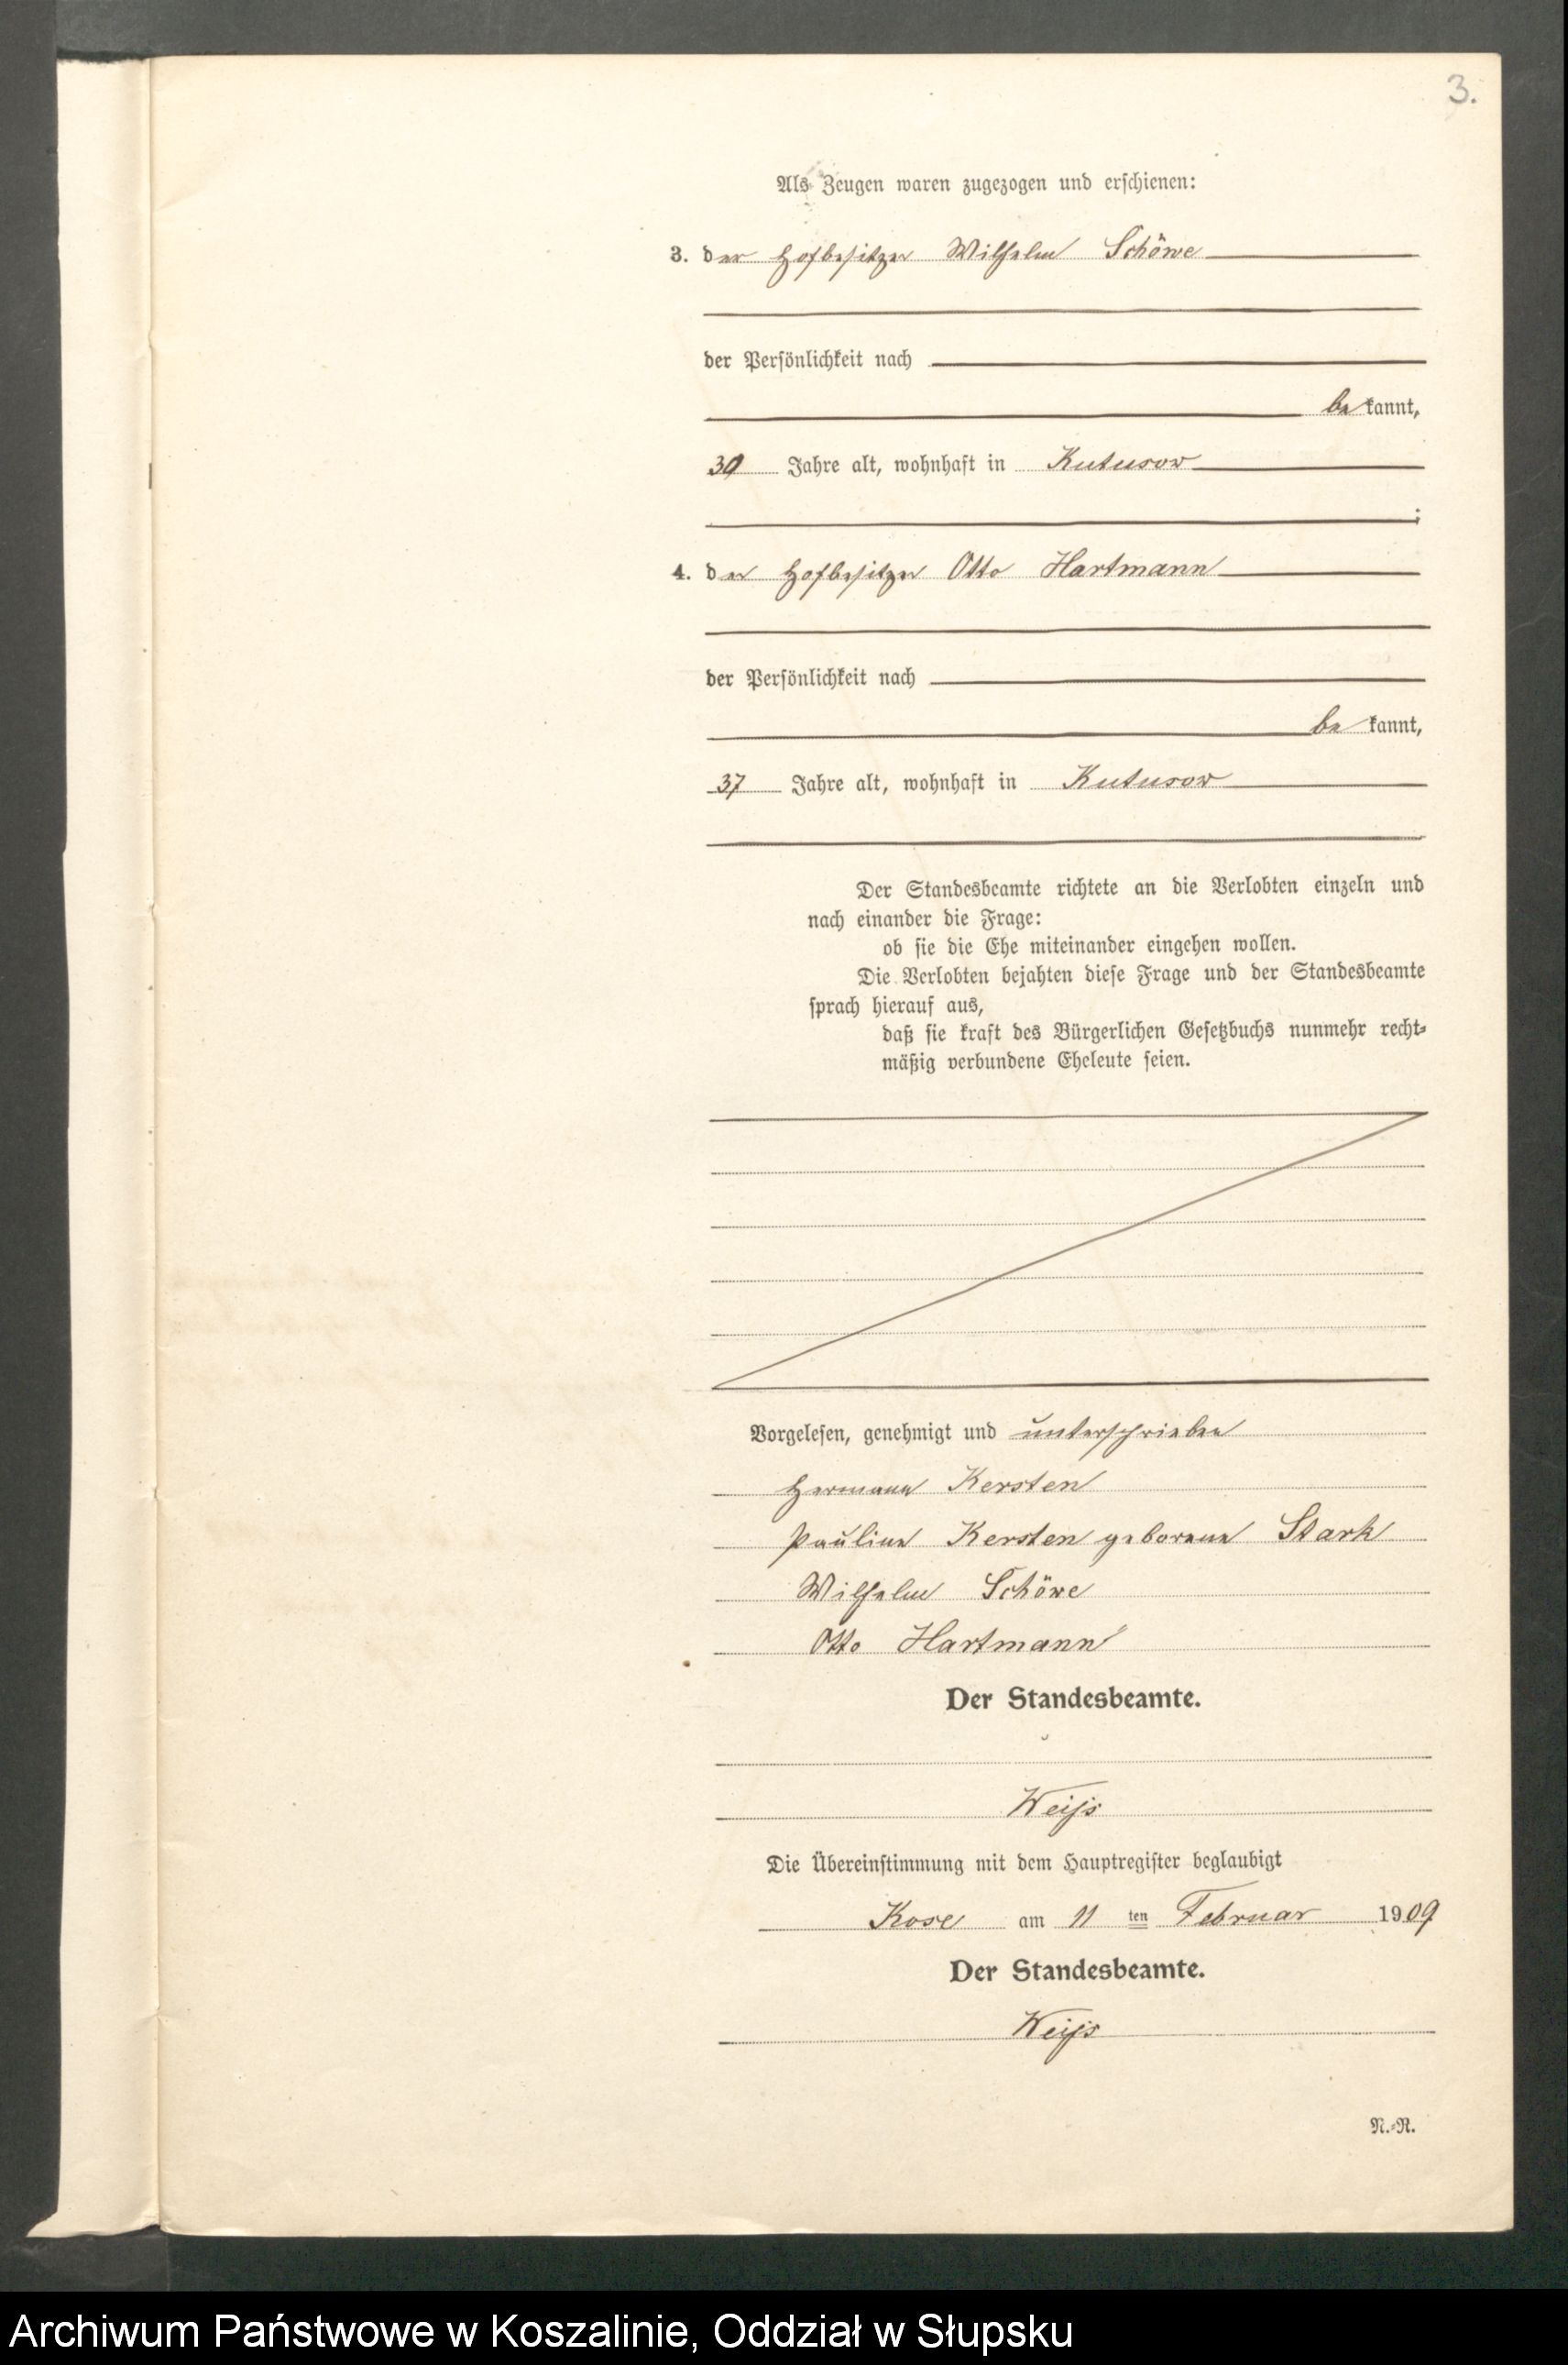 3.
Als Zeugen waren zugezogen und erschienen:
3. der Hofbesitzer Wilhelm Schöwe
der Persönlichkeit nach
bekannt,
Jahre alt, wohnhaft in Kutusow
;
4. der Hofbesitzer Otto Hartmann
der Persönlichkeit nach
bekannt,
37 Jahre alt, wohnhaft in Kutusow
Der Standesbeamte richtete an die Verlobten einzeln und
nach einander die Frage:
ob sie die Ehe miteinander eingehen wollen.
Die Verlobten bejahten diese Frage und der Standesbeamte
sprach hierauf aus,
daß sie kraft des Bürgerlichen Gesetzbuchs nunmehr recht-
mäßig verbundene Eheleute seien.
Vorgelesen, genehmigt und unterschrieben
Hermann Kersten
Pauline Kersten geborene Stark
Wilhelm Schöwe
Otto Hartmann
Der Standesbeamte.
Weiß
Die Übereinstimmung mit dem Hauptregister beglaubigt
Kose am 11 ten Februar 1909
Der Standesbeamte.
Weiß
N.-R.
Archiwum Państwowe w Koszalinie, Oddział w Słupsku